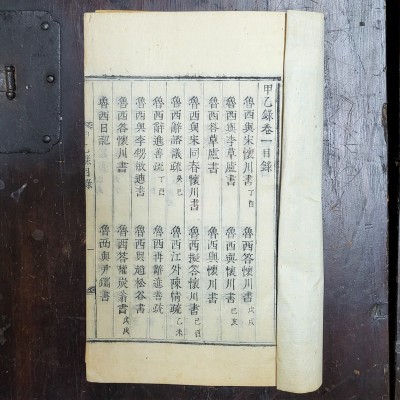 甲乙錄卷一目錄
魯西與宋懷川書 丁酉 魯西答懷川書 戊戌
魯西與李草廬書 魯西與懷川書 己亥
魯西答草廬書 魯西與懷川書
魯西與宋同春懷川書 魯西擬答懷川書 己酉
魯西辭諮議疏 癸巳 魯西江外陳情疏 乙未
魯西辭進善疏 丁酉 魯西再辭進善疏
魯西與李 敏迪書 魯西與趙松谷書
魯西答懷川書 魯西答權炭翁書 戊戌
魯西日記 魯西與尹鑴書
甲乙錄目錄 一